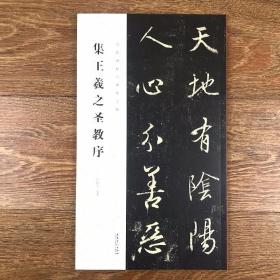 天地有陰陽
人心分善惡
集王羲之圣教序